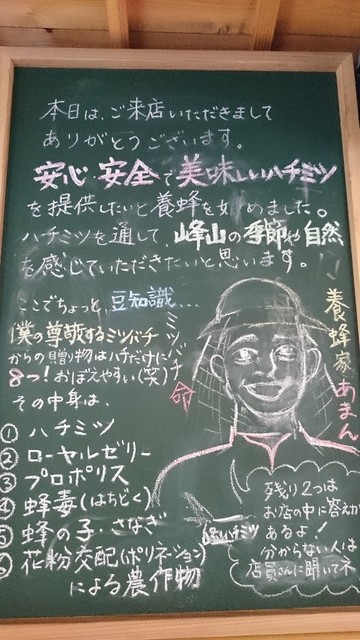 本日は、ご来店いただきまして
ありがとうございます。
安心・安全で美味しいハチミツ
を提供したいと養蜂を始めました。
ハチミツを通して、峰山の季節や自然
を感じていただきたいと思います。
ここでちょっと、豆知識…
僕の尊敬するミツバチ
からの贈り物はハチだけに
8つ！おぼえやすい(笑)
その中身は、
① ハチミツ
② ローヤルゼリー
③ プロポリス
④ 蜂毒(はちどく)
⑤ 蜂の子・さなぎ
⑥ 花粉交配(ポリネーション)
による農作物
ミツバチ命
養蜂家あまん
ハチミツ
残り2つは
お店の中に答えが
あるよ！
分からない人は
店員さんに聞いてネ